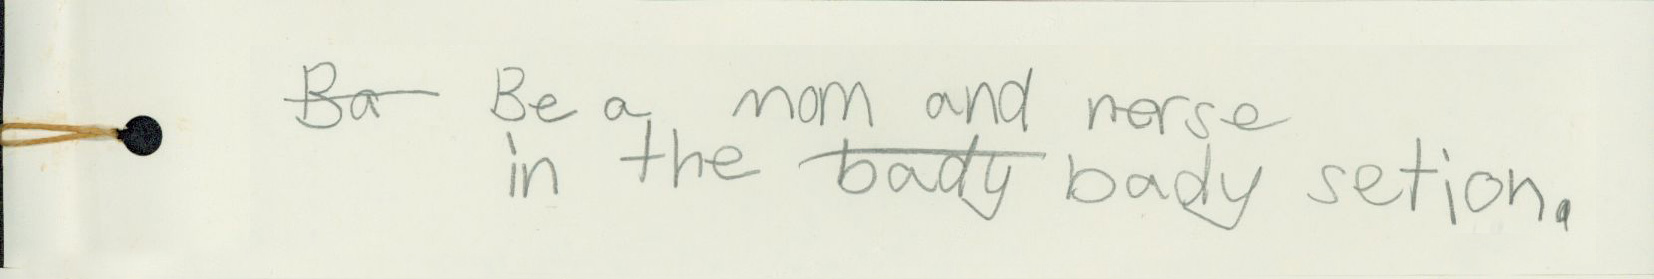 Ba Be a mom and nerse
in the bady bady setion.